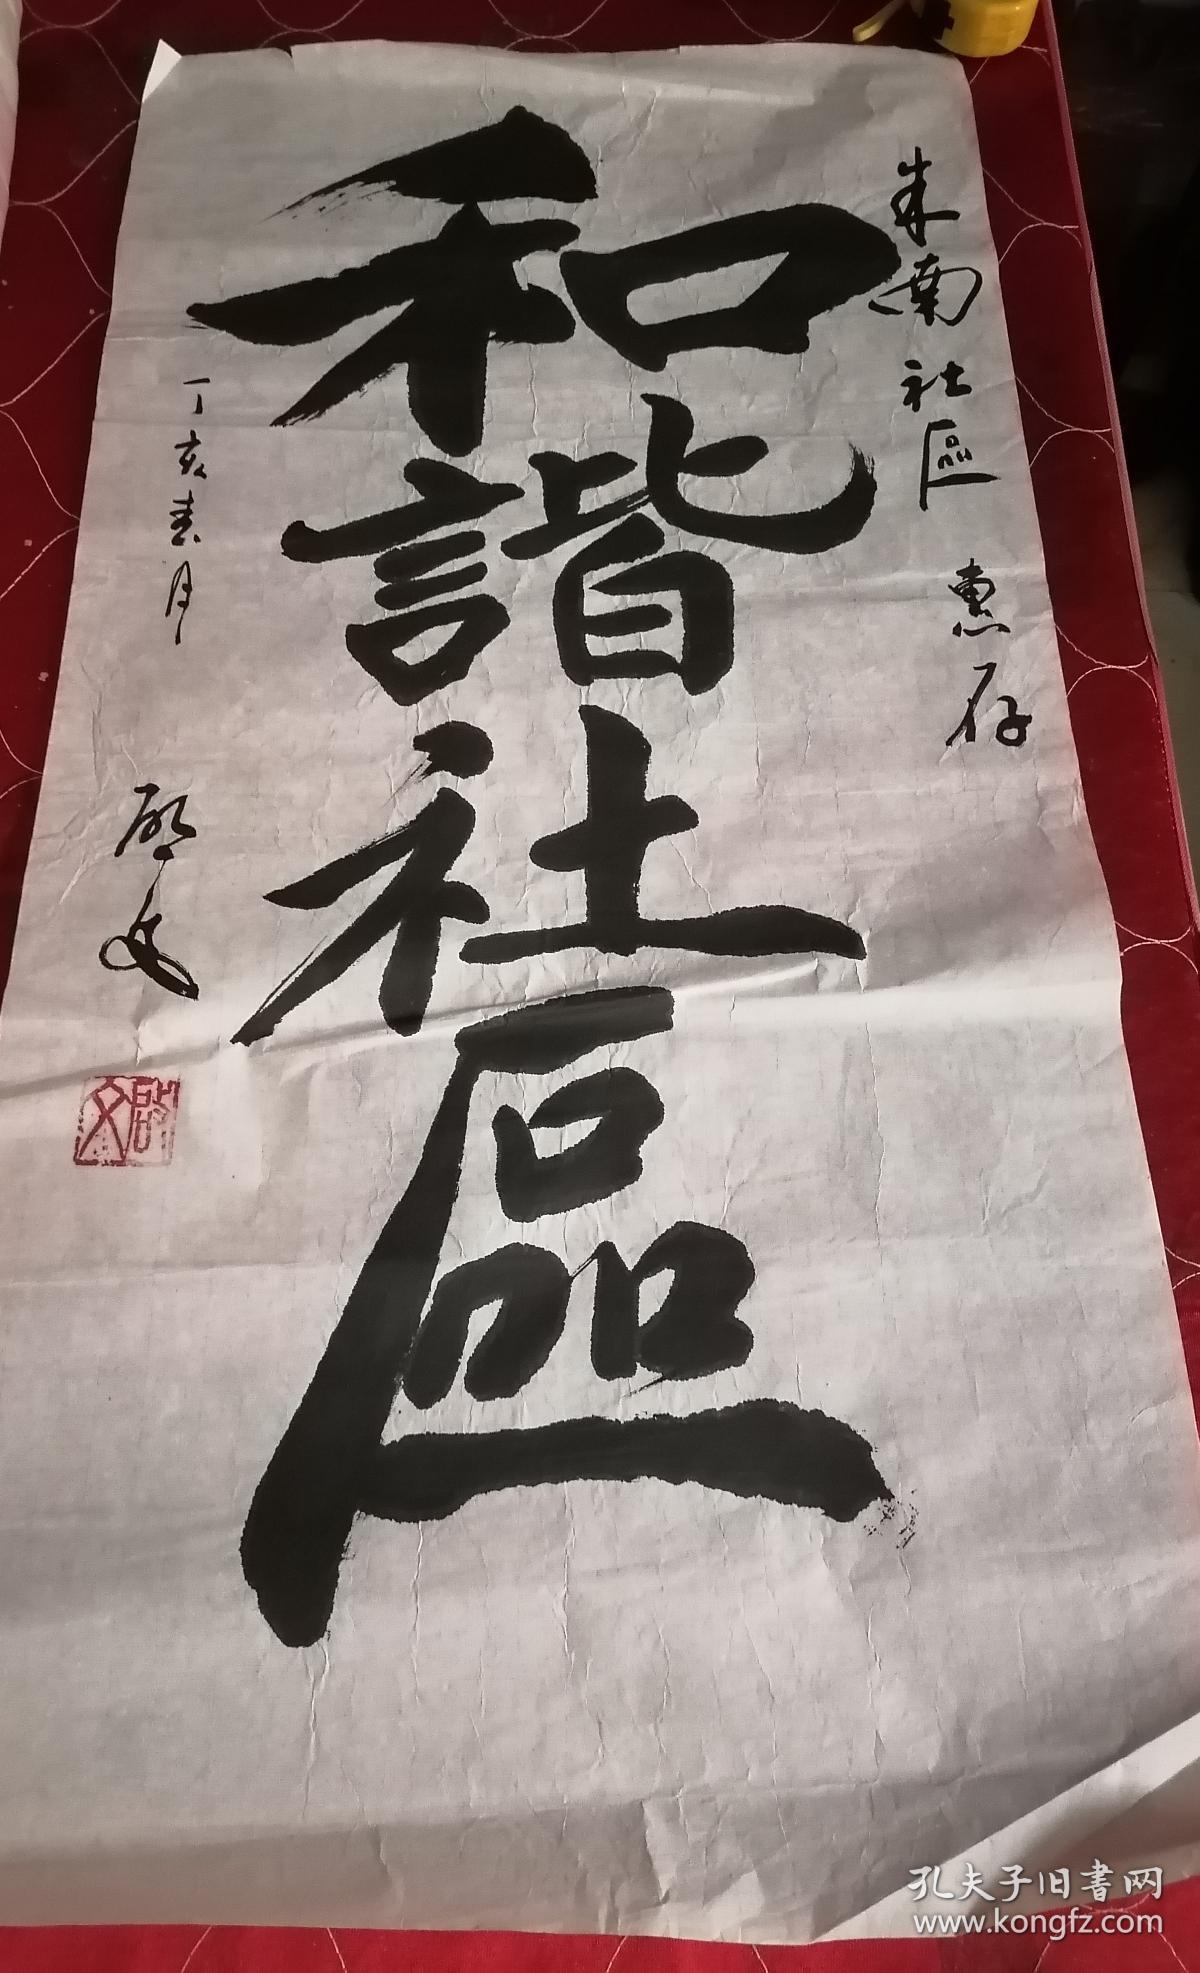 朱南社區 惠存
和諧社區
丁亥春月
啓文
啟文
孔夫子旧書网
www.kongfz.com